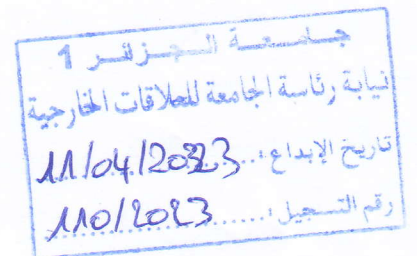 جامعة الجزائر 1
نيابة رئاسة الجامعة للعلاقات الخارجية
تاريخ الإبداع: 11/04/2023
رقم التسجيل: 110/2023